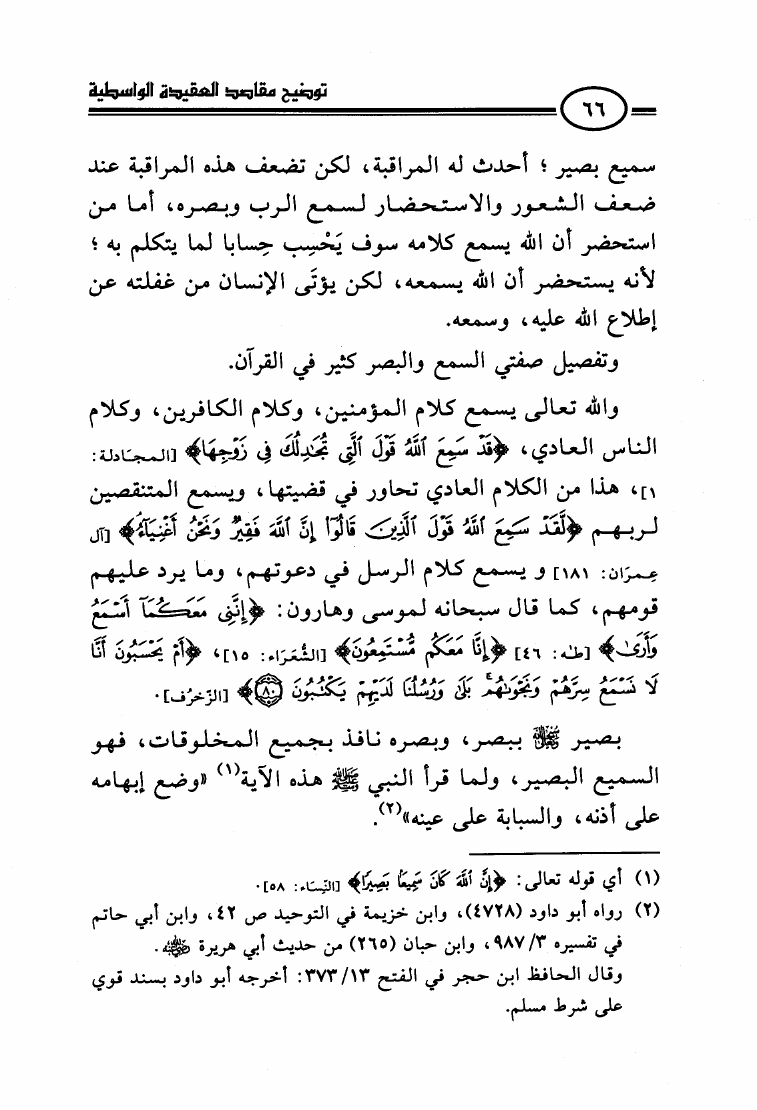 توضيح مقاصد العقيدة الواسطية
٦٦
سميع بصير ؛ أحدث له المراقبة، لكن تضعف هذه المراقبة عند
ضعف الشعور والاستحضار لسمع الرب وبصره، أما من
استحضر أن الله يسمع كلامه سوف يَحْسِب حِسابا لما يتكلم به ؛
لأنه يستحضر أن الله يسمعه، لكن يؤتَى الإنسان من غفلته عن
إطلاع الله عليه، وسمعه.
وتفصيل صفتي السمع والبصر كثير في القرآن.
والله تعالى يسمع كلام المؤمنين، وكلام الكافرين، وكلام
الناس العادي، ﴿قَدْ سَمِعَ ٱللَّهُ قَوْلَ ٱلَّتِى تُجَٰدِلُكَ فِى زَوْجِهَا﴾ [المجَادلة:
١]، هذا من الكلام العادي تحاور في قضيتها، ويسمع المتنقصين
لربهم ﴿لَّقَدْ سَمِعَ ٱللَّهُ قَوْلَ ٱلَّذِينَ قَالُوٓا۟ إِنَّ ٱللَّهَ فَقِيرٌ وَنَحْنُ أَغْنِيَآءُ﴾ [آل
عِمرَان: ١٨١] و يسمع كلام الرسل في دعوتهم، وما يرد عليهم
قومهم، كما قال سبحانه لموسى وهارون: ﴿إِنَّنِى مَعَكُمَآ أَسْمَعُ
وَأَرَىٰ﴾ [طه: ٤٦] ﴿إِنَّا مَعَكُم مُّسْتَمِعُونَ﴾ [الشُّعَرَاء: ١٥]، ﴿أَمْ يَحْسَبُونَ أَنَّا
لَا نَسْمَعُ سِرَّهُمْ وَنَجْوَىٰهُم ۚ بَلَىٰ وَرُسُلُنَا لَدَيْهِمْ يَكْتُبُونَ ۝٨٠﴾ [الزّخرُف].
بصير ببصر، وبصره نافذ بجميع المخلوقات، فهو
السميع البصير، ولما قرأ النبي ﷺ هذه الآية(١) «وضع إبهامه
على أذنه، والسبابة على عينه»(٢).
(١) أي قوله تعالى: ﴿إِنَّ ٱللَّهَ كَانَ سَمِيعًۢا بَصِيرًا﴾ [النِّسَاء: ٥٨].
(٢) رواه أبو داود (٤٧٢٨)، وابن خزيمة في التوحيد ص ٤٢، وابن أبي حاتم
في تفسيره ٣/ ٩٨٧، وابن حبان (٢٦٥) من حديث أبي هريرة رضي الله عنه.
وقال الحافظ ابن حجر في الفتح ١٣/ ٣٧٣: أخرجه أبو داود بسند قوي
على شرط مسلم.